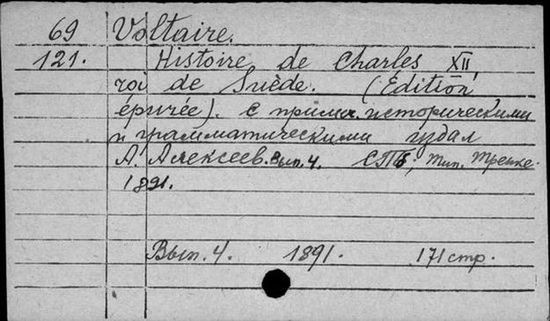 69 Voltaire.
121. Histoire de Charles XII,
roi de Suède. (Édition
épurée). С примѣч. историческими
и грамматическими издал
А. Алексеев. Вып. 4. СПб, тип. Тренке.
1891.
Вып. 4. 1891. 171 стр.